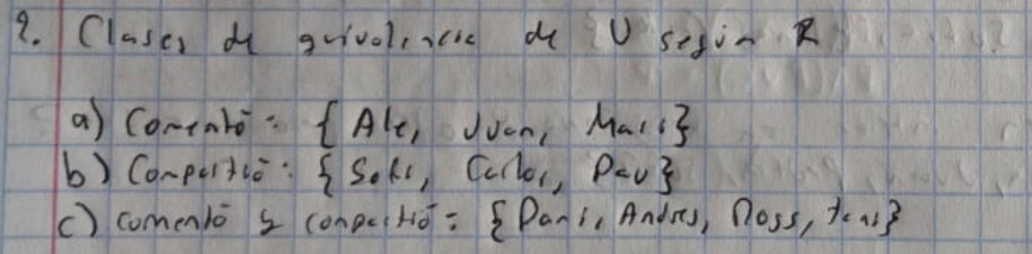 2. Clases de equivalencia de U según R
a) Comentó: { Ale, Juan, Maii}
b) Compartió: { Sofi, Carlos, Pau}
c) comentó y compartió: {Dani, Andres, Ross,